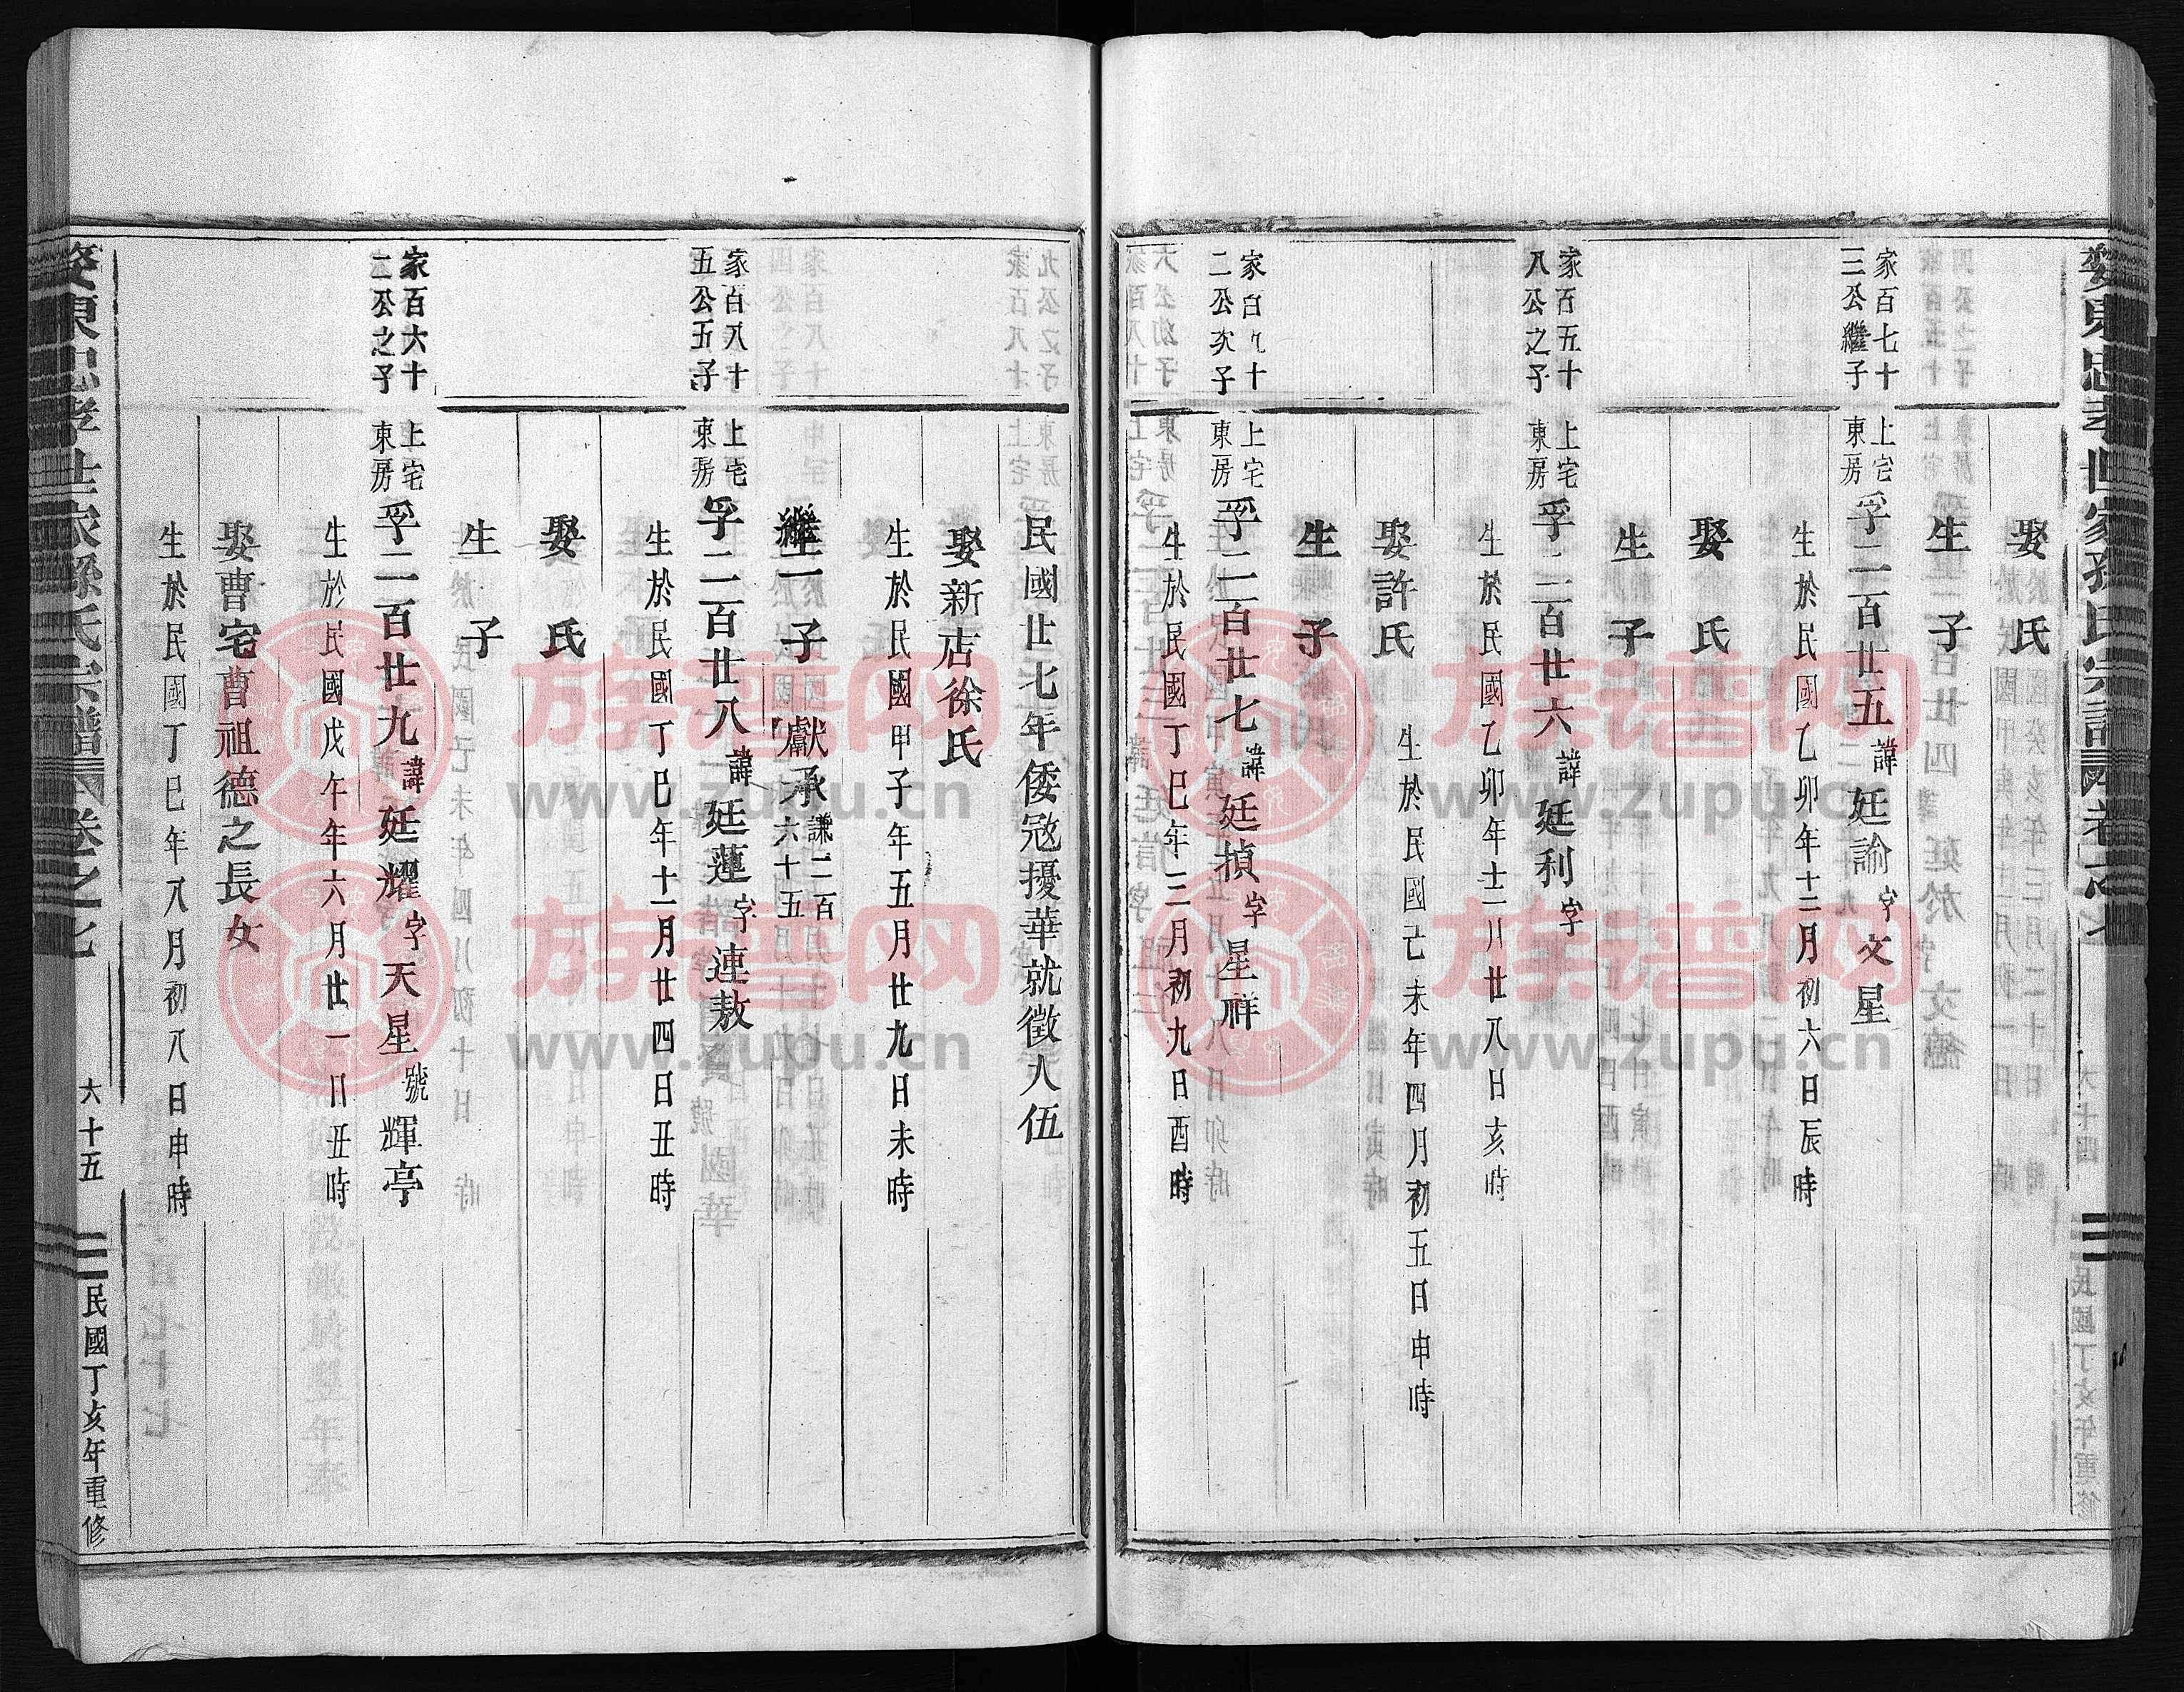 娶 氏
生 子
家百七十
三公繼子
上宅
東房
孚二百廿五諱廷諭字文星
生於民國乙卯年十二月初六日辰時
娶 氏
生 子
家百五十
八公之子
上宅
東房
孚二百廿六諱廷利字
生於民國乙卯年十二月廿八日亥時
娶許氏 生於民國己未年四月初五日申時
生 子
家百九十
二公次子
上宅
東房
孚二百廿七諱廷楨字星祥
生於民國丁巳年三月初九日酉時
民國廿七年倭寇擾華就徵入伍
娶新店徐氏
生於民國甲子年五月廿九日未時
繼一子 獻承謙二百
六十五
家百八十
五公五子
上宅
東房
孚二百廿八諱廷蓮字連敖
生於民國丁巳年十一月廿四日丑時
娶 氏
生 子
家百六十
二公之子
上宅
東房
孚二百廿九諱廷耀字天星號輝亭
生於民國戊午年六月廿一日丑時
娶曹宅曹祖德之長女
生於民國丁巳年八月初八日申時
婺東忠孝世家孫氏宗譜 卷之七
六十五
民國丁亥年重修
族谱网
www.zupu.cn
族谱网
www.zupu.cn
族谱网
www.zupu.cn
族谱网
www.zupu.cn